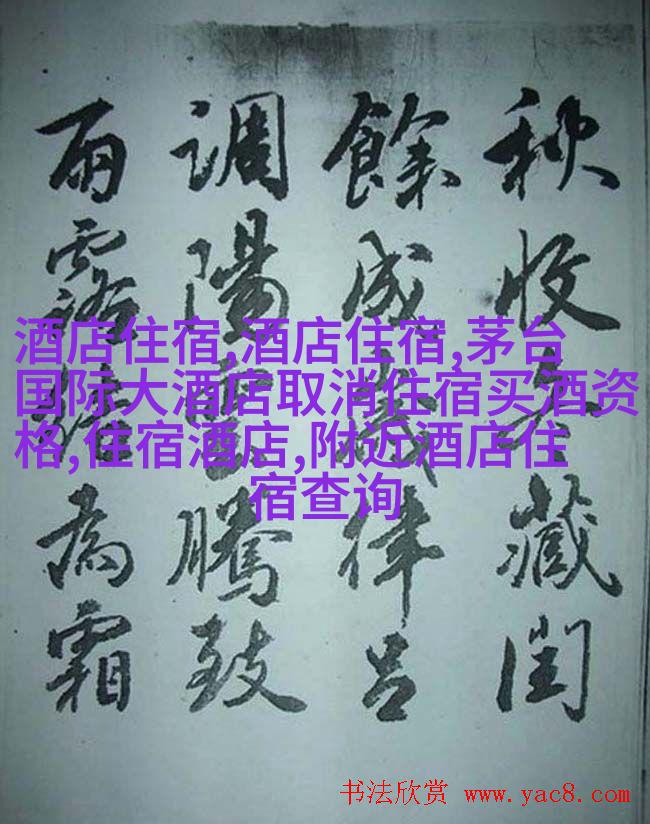 秋收冬藏閏
餘成歲律呂
調陽雲騰致
雨露結為霜
酒店住宿,酒店住宿,茅台
国际大酒店取消住宿买酒资
格,住宿酒店,附近酒店住
宿查询
书法欣赏 www.yac8.com